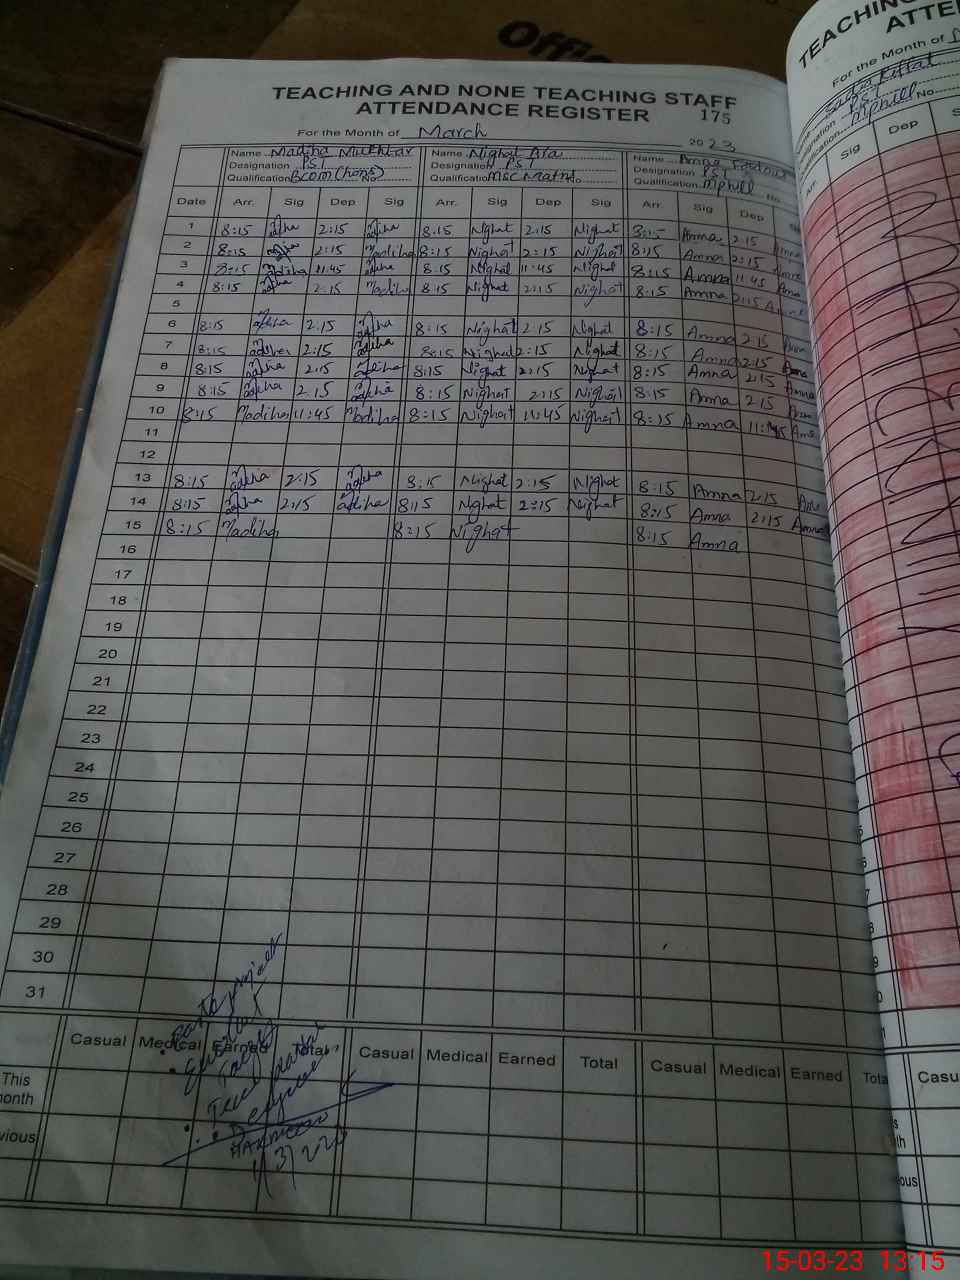 Offic
TEACHING AND NONE TEACHING STAFF
ATTENDANCE REGISTER 175
For the Month of March 2023
Name Madiha Mukhtar Name Nighat Ara Name Amna
Designation PST Designation PST Designation PST
Qualification Bcom (hons) No Qualification Msc Maths No Qualification Mphill No
Date Arr. Sig Dep Sig Arr. Sig Dep Sig Arr. Sig Dep
1 8:15 Madiha 2:15 Madiha 8:15 Nighat 2:15 Nighat 8:15 Amna 2:15 Amna
2 8:15 Madiha 2:15 Madiha 8:15 Nighat 2:15 Nighat 8:15 Amna 2:15 Amna
3 8:15 Madiha 11:45 Madiha 8:15 Nighat 11:45 Nighat 8:15 Amna 11:45 Amna
4 8:15 Madiha 2:15 Madiha 8:15 Nighat 2:15 Nighat 8:15 Amna 2:15 Amna
5
6 8:15 Madiha 2:15 Madiha 8:15 Nighat 2:15 Nighat 8:15 Amna 2:15 Amna
7 8:15 Madiha 2:15 Madiha 8:15 Nighat 2:15 Nighat 8:15 Amna 2:15 Amna
8 8:15 Madiha 2:15 Madiha 8:15 Nighat 2:15 Nighat 8:15 Amna 2:15 Amna
9 8:15 Madiha 2:15 Madiha 8:15 Nighat 2:15 Nighat 8:15 Amna 2:15 Amna
10 8:15 Madiha 11:45 Madiha 8:15 Nighat 11:45 Nighat 8:15 Amna 11:45 Amna
11
12
13 8:15 Madiha 2:15 Madiha 8:15 Nighat 2:15 Nighat 8:15 Amna 2:15 Amna
14 8:15 Madiha 2:15 Madiha 8:15 Nighat 2:15 Nighat 8:15 Amna 2:15 Amna
15 8:15 Madiha 8:15 Nighat 8:15 Amna
16
17
18
19
20
21
22
23
24
25
26
27
28
29
30
31
Casual Medical Earned Total Casual Medical Earned Total Casual Medical Earned Tota
This
onth
vious
TEACHING
ATTE
For the Month of
Mphill No
Sig Dep
Casu
15-03-23 13:15